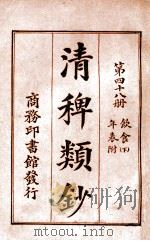 第四十八册
飲食(下)
年表附
清稗類鈔
商務印書館發行
www.toptushu.com